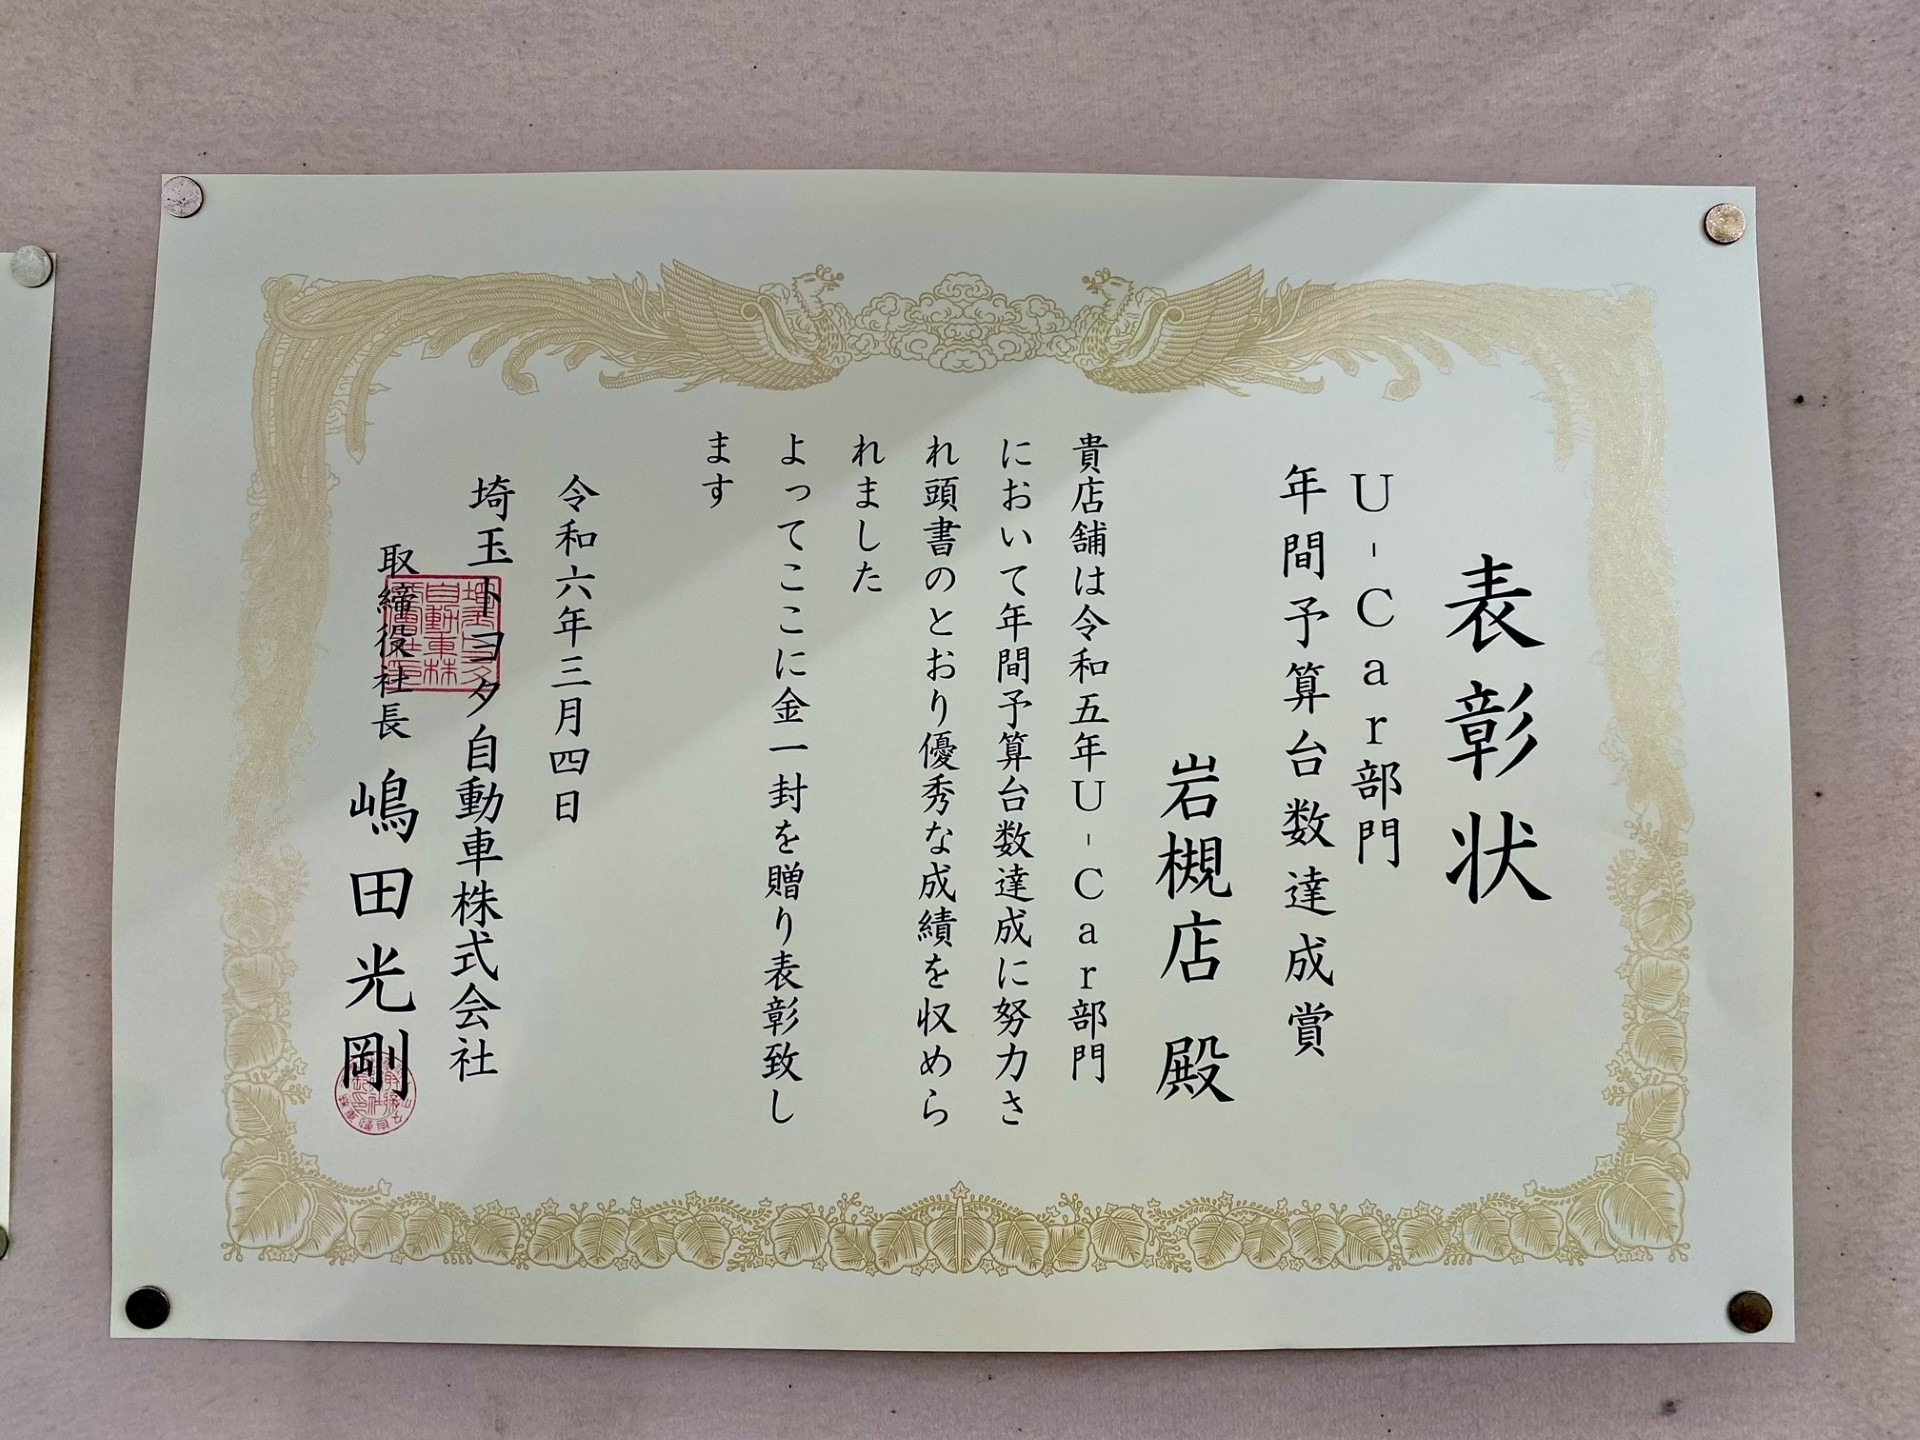 表彰状
U-Car部門
年間予算台数達成賞
岩槻店 殿
貴店舗は令和五年U-Car部門
において年間予算台数達成に努力さ
れ頭書のとおり優秀な成績を収めら
れました
よってここに金一封を贈り表彰致し
ます
令和六年三月四日
埼玉トヨタ自動車株式会社
取締役社長 嶋田光剛